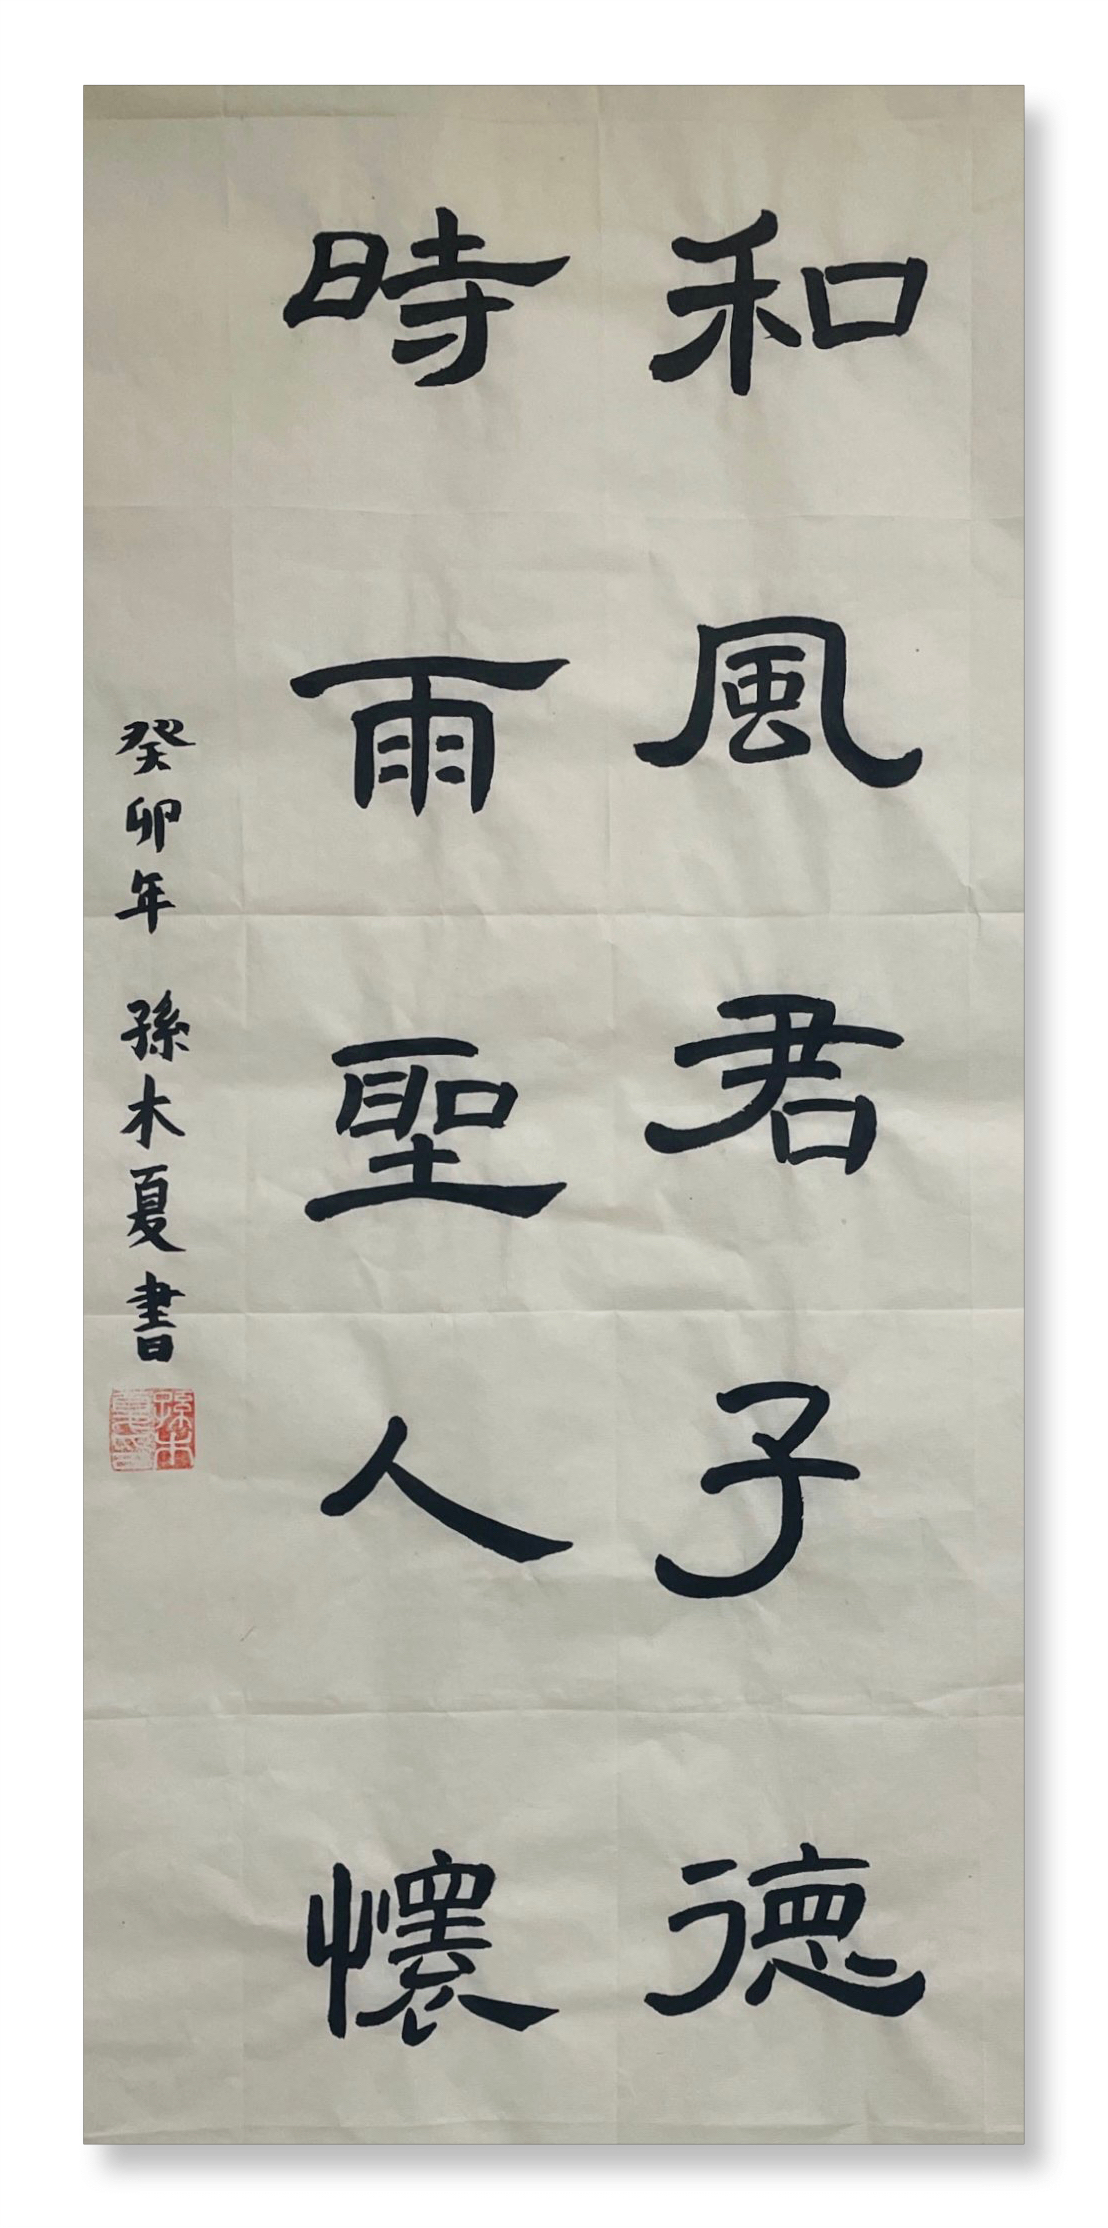 和風君子德
時雨聖人懷
癸卯年 孫木夏書